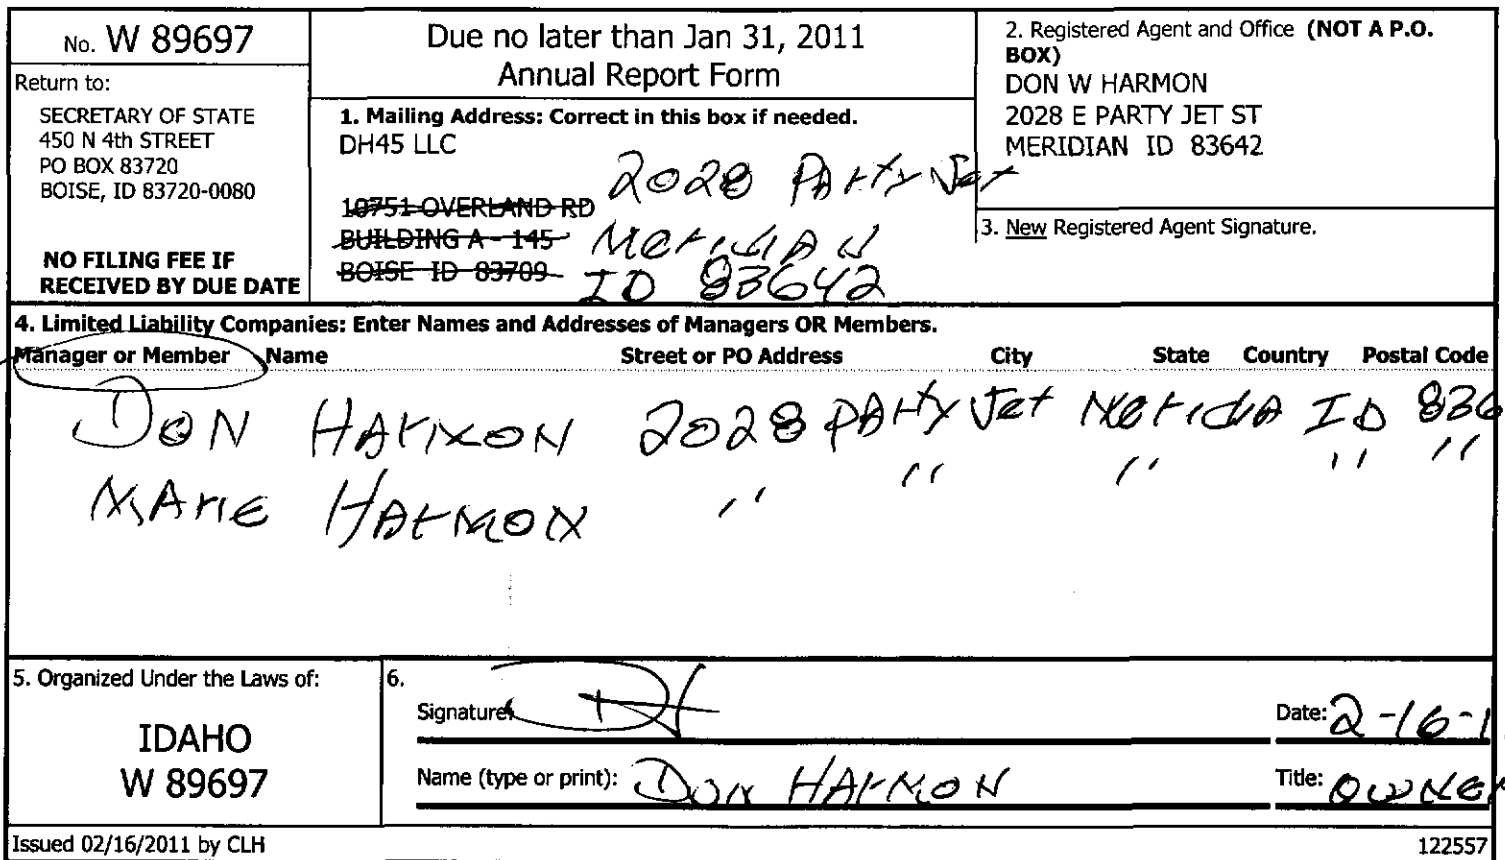 No. W 89697
Return to:
SECRETARY OF STATE
450 N 4th STREET
PO BOX 83720
BOISE, ID 83720-0080
NO FILING FEE IF
RECEIVED BY DUE DATE
Due no later than Jan 31, 2011
Annual Report Form
1. Mailing Address: Correct in this box if needed.
DH45 LLC
10751 OVERLAND RD
BUILDING A - 145
BOISE ID 83709
2028 PArty Jet
MeridiAN
ID 83642
2. Registered Agent and Office (NOT A P.O.
BOX)
DON W HARMON
2028 E PARTY JET ST
MERIDIAN ID 83642
3. New Registered Agent Signature.
4. Limited Liability Companies: Enter Names and Addresses of Managers OR Members.
Manager or Member Name Street or PO Address City State Country Postal Code
DON HArMON 2028 PArty Jet MeridiA ID 836
MArie HArMON " " " " "
5. Organized Under the Laws of:
IDAHO
W 89697
6.
Signature: DH
Date: 2-16-1
Name (type or print): DON HArMON
Title: OWNer
Issued 02/16/2011 by CLH
122557